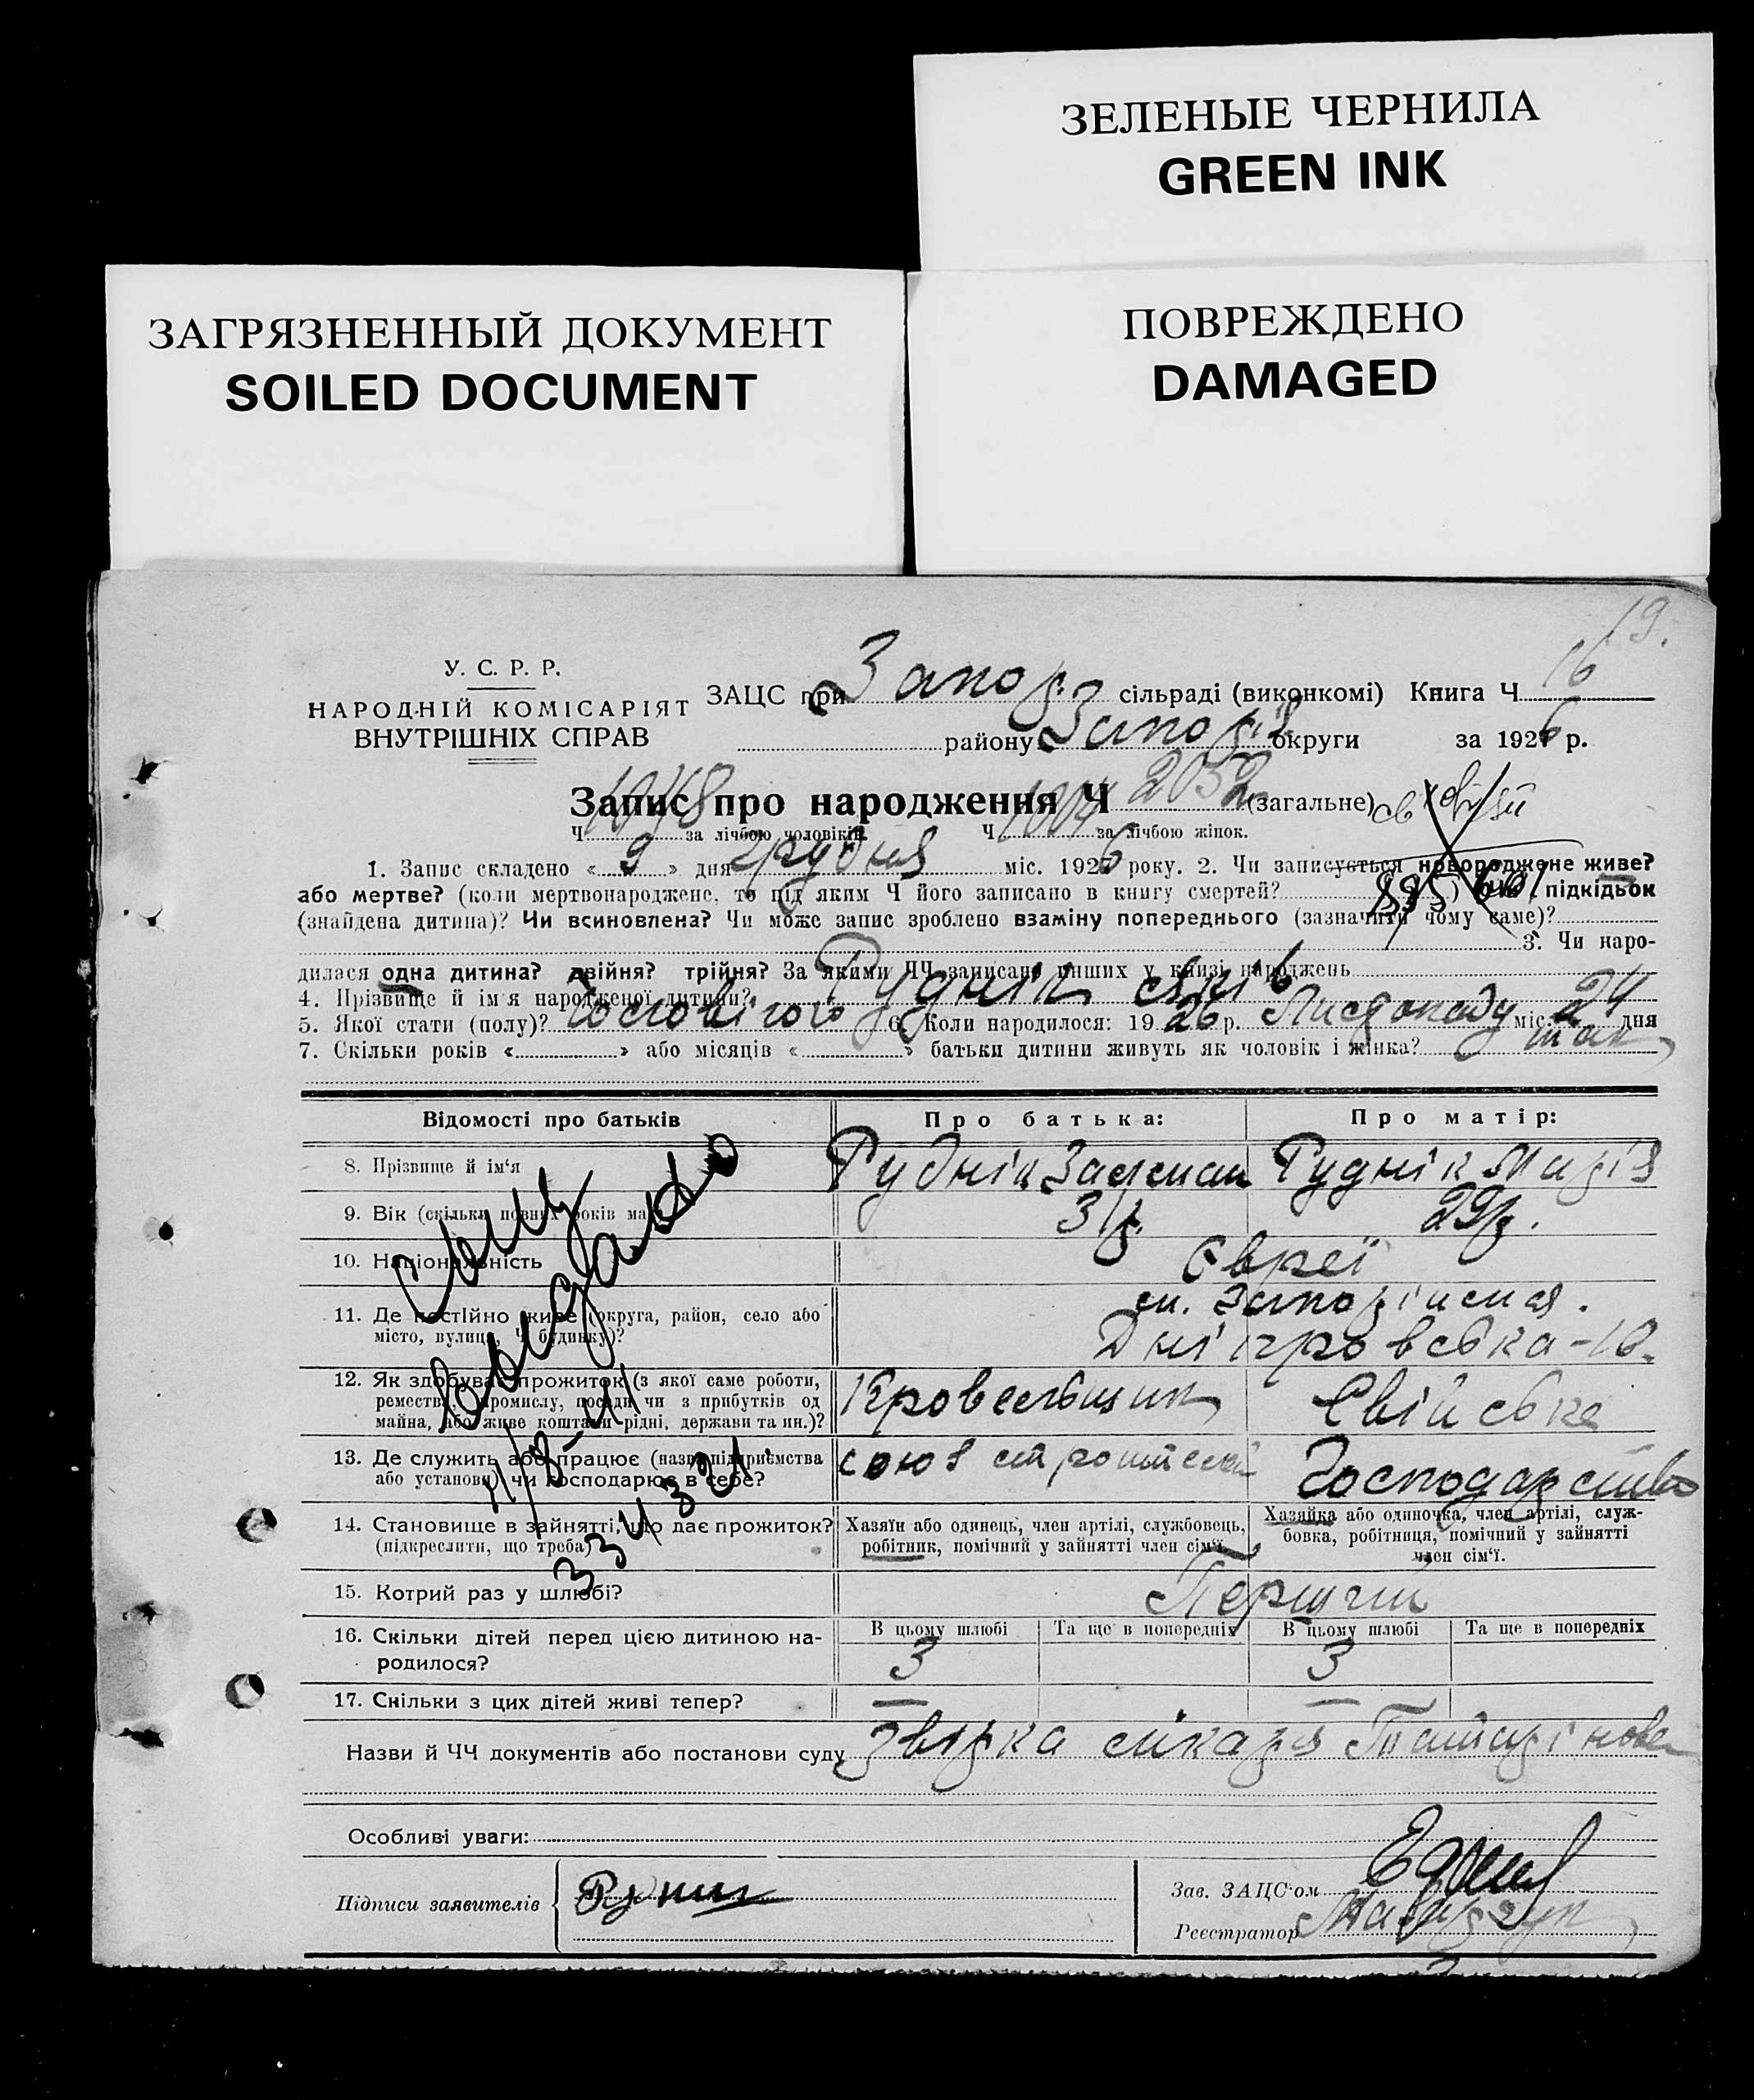 ЗЕЛЕНЫЕ ЧЕРНИЛА
GREEN INK
ЗАГРЯЗНЕННЫЙ ДОКУМЕНТ
SOILED DOCUMENT
ПОВРЕЖДЕНО
DAMAGED
19.
У. С. Р. Р.
НАРОДНІЙ КОМІСАРІЯТ
ВНУТРІШНІХ СПРАВ
ЗАЦС при Запор сільраді (виконкомі) Книга Ч 16
району Запоріз округи за 1926 р.
Запис про народження Ч 2052 (загальне)
Ч 1048 за лічбою чоловіків. Ч 1004 за лічбою жінок.
1. Запис складено « 9 » дня грудня міс. 1926 року. 2. Чи записується новороджене живе?
або мертве? (коли мертвонароджене, то під яким Ч його записано в книгу смертей? ) Чи підкідьок
(знайдена дитина)? Чи всиновлена? Чи може запис зроблено взаміну попереднього (зазначити чому саме)?
3. Чи наро-
дилася одна дитина? двійня? трійня? За якими ЧЧ записано инших у книзі народжень
4. Прізвище й ім'я народженої дитини? Руднік
5. Якої стати (полу)? Чоловічого 6. Коли народилося: 1926 р. Листопаду міс. 24 дня
7. Скільки років « » або місяців « » батьки дитини живуть як чоловік і жінка? так
Відомості про батьків Про батька: Про матір:
8. Прізвище й ім'я Руднік Залман Руднік Марія
9. Вік (скільки повних років має) 31р. 29р.
10. Національність Євреї
11. Де постійно живе (округа, район, село або
місто, вулиця, Ч будинку)?
м. Запоріжжя.
Дніпровська-10.
12. Як здобуває прожиток (з якої саме роботи,
ремества, промислу, посади чи з прибутків од
майна, або живе коштами рідні, держави та ин.)?
Кровельщик Свійське
13. Де служить або працює (назва підприємства
або установи) чи господарює в себе?
союз строителей Господарство
14. Становище в зайнятті, що дає прожиток?
(підкреслити, що треба)
Хазяїн або одинець, член артілі, службовець,
робітник, помічний у зайнятті член сім'ї.
Хазяйка або одиночка, член артілі, служ-
бовка, робітниця, помічний у зайнятті
член сім'ї.
15. Котрий раз у шлюбі? Перший
16. Скільки дітей перед цією дитиною на-
родилося?
В цьому шлюбі Та ще в попередніх В цьому шлюбі Та ще в попередніх
3 3
17. Скільки з цих дітей живі тепер? — —
Назви й ЧЧ документів або постанови суду
Особливі уваги:
Підписи заявителів
Зав. ЗАЦС'ом
Реєстратор
Выдано